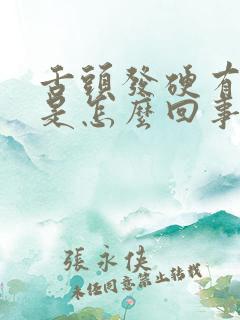 舌頭發硬有
是怎麼回事
張永俠
未經同意禁止轉載